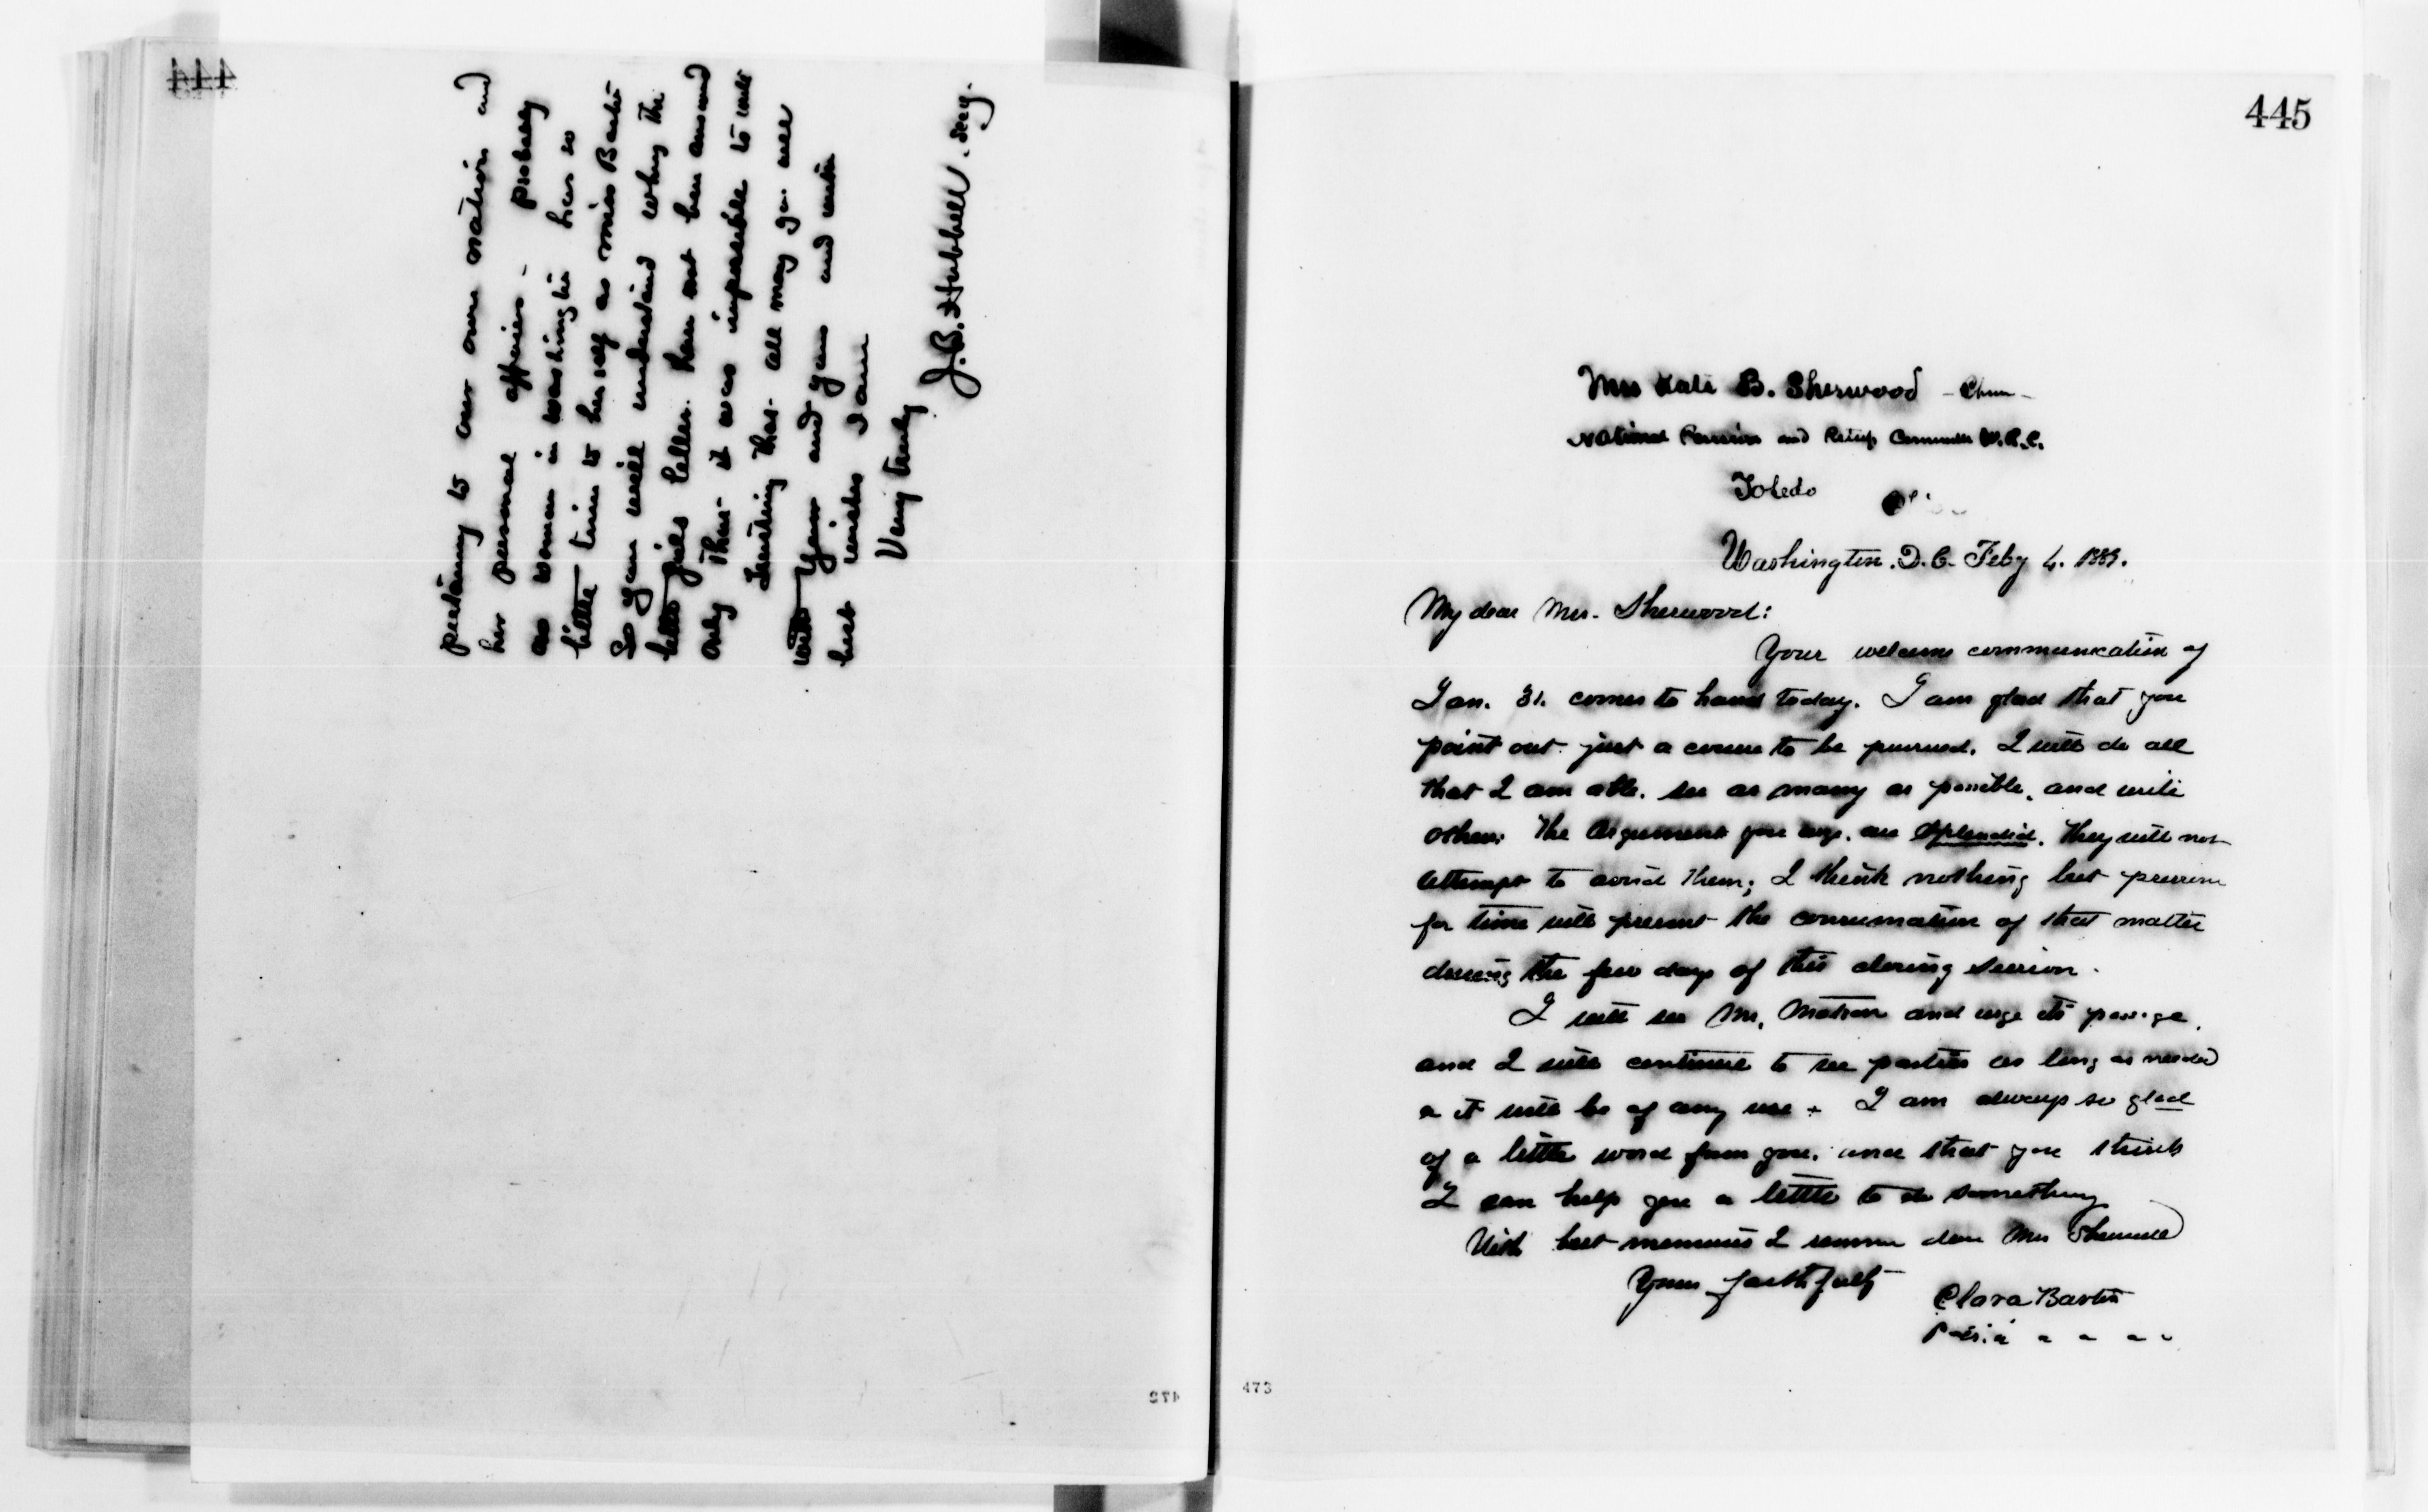 444
pertaining to our own nation and
her personal affairs - probably
no woman in Washington has so
little time to herself as Miss Barton
So you will understand why the
little girls letter have not been answered
only that it was impossible to will
Trusting that all may go well
with you and yours and with
best wishes I am
Very truly
J.B. Hubbell. Secy.
445
Mrs Kate B. Sherwood - Chm -
National Pension and Relief Committee W.R.C.
Toledo
Washington. D.C. Feby 4. 1889.
My dear Mrs. Sherwood:
Your welcome communication of
Jan. 31. comes to hand today. I am glad that you
point out just a course to be pursued. I will do all
that I am able. see as many as possible, and write
others. The arguments you urge. are splendid. They will not
attempt to avoid them; I think nothing but pressure
for time will prevent the consumation of that matter
during the few days of this closing session.
I will see Mr. Matson and urge its passage,
and I will continue to see parties as long as needed
or it will be of any use + I am always so glad
of a little word from you. and that you think
I can help you a little to do something
With best memories I remain dear Mrs Sherwood
Yours faithfully
Clara Barton
473
473